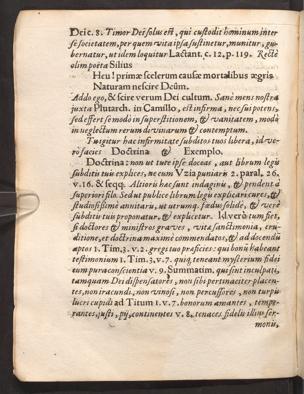 Dei c. 8. Timor Dei solus est, qui custodit hominum inter
se societatem, per quem vita ipsa sustinetur, munitur, gu-
bernatur, ut idem loquitur Lactant. c. 12. p. 119. Rectè
olim poëta Silius
Heu! primæ scelerum causæ mortalibus ægris
Naturam nescire Deûm.
Addo ego, & scire verum Dei cultum. Sanè mens nostra
juxta Plutarch. in Camillo, est infirma, nec sui potens,
sed effert se modò in superstitionem, & vanitatem, modò
in neglectum rerum divinarum & contemptum.
Tu igitur hac infirmitate subditos tuos libera, id ve-
rò facies Doctrina & Exemplo.
Doctrina: non ut tute ipse doceas, aut librum legis
subditis tuis explices, ne cum Uzia puniaris 2. paral. 26.
v. 16. & seqq. Altioris hæc sunt indaginis, & pendent à
superiori filo. Sed ut publicè librum legis explicari cures, &
studiosissimè annitaris, ut utrumq. fœdus solidè, & verè
subditis tuis proponatur, & explicetur. Id verò tum fiet,
si doctores & ministros graves, vita sanctimonia, eru-
ditione, et doctrina maximè commendatos, ad docendum
aptos 1. Tim. 3. v. 2. gregi tuo præficies: qui bonum habeant
testimonium 1. Tim. 3. v. 7. quiq; teneant mysterium fidei
cum pura conscientia v. 9. Summatim, qui sint inculpati,
tamquam Dei dispensatores, non sibi pertinaciter placen-
tes, non iracundi, non vinosi, non percussores, non turpis
lucri cupidi ad Titum 1. v. 7. bonorum amantes, tempe-
rantes, justi, pij, continentes v. 8. tenaces fidelis illius ser-
monis,